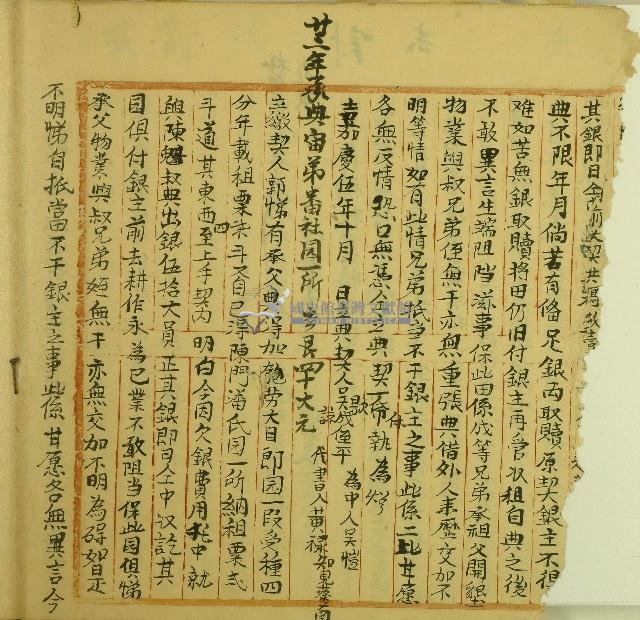 其銀即日仝
典不限年月倘若有俻足銀兩取贖原契銀主不
难如若無銀取贖將田仍旧付銀主再管收租自典之後
不敢異言生端阻挡滋事保此田係成等兄弟承祖父開墾
物業與叔兄弟侄無干亦無重張典借外人來歷交加不
明等情如有此情兄弟抵当不干銀主之事此係二比甘愿
各無反情恐口無憑今立典契一紙付執為炤
嘉慶伍年十月 日典契人吳成
為中人吳愷
代書人黃祿
廿三年承典宙弟番社园一所 艮四十大元
立繳契人郭悌有承父典得加 劳大目即园一段受種四
分年載租粟 斗又自己浮陳門潘氏园一所納租粟弍
斗道其東西四至上手契內 明白今因欠銀費用托中就
與陳魁叔典出銀伍拾大員正其銀即日仝中収訖其
园俱付銀主前去耕作永為己業不敢阻当保此园俱悌
承父物業與叔兄弟姪無干亦無交加不明為碍如是
不明悌自抵當不干銀主之事此係甘愿各無異言今